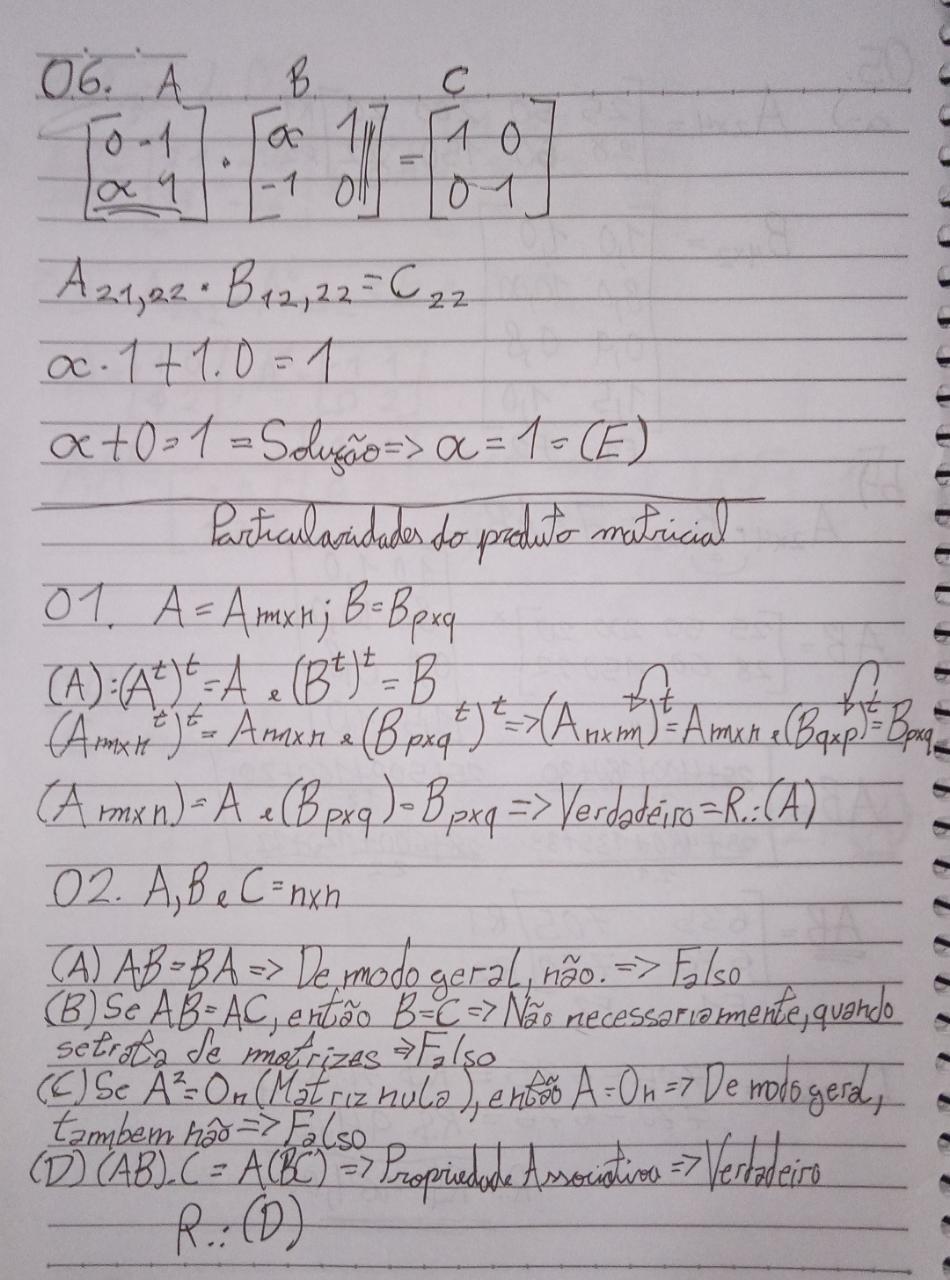 06. A B C
[0 -1 α 1] . [α 1 -1 0] = [1 0 0 1]
A21,22 . B12,22 = C22
α . 1 + 1.0 = 1
α + 0 = 1 = Solução => α = 1 = (E)
Particularidades do produto matricial
01. A = Amxn; B = Bpxq
(A):(Aᵗ)ᵗ = A e (Bᵗ)ᵗ = B
(Amxnᵗ)ᵗ = Amxn e (Bpxqᵗ)ᵗ => (Anxm)ᵗ = Amxn e (Bqxp)ᵗ = Bpxq
(Amxn) = A e (Bpxq) = Bpxq => Verdadeiro = R.: (A)
02. A, B e C = nxn
(A) AB = BA => De modo geral, não. => Falso
(B) Se AB = AC, então B = C => Não necessariamente, quando
se trata de matrizes => Falso
(C) Se A² = On (Matriz nula), então A = On => De modo geral,
tambem não => Falso
(D) (AB).C = A(BC) => Propriedade Associativa => Verdadeiro
R.: (D)